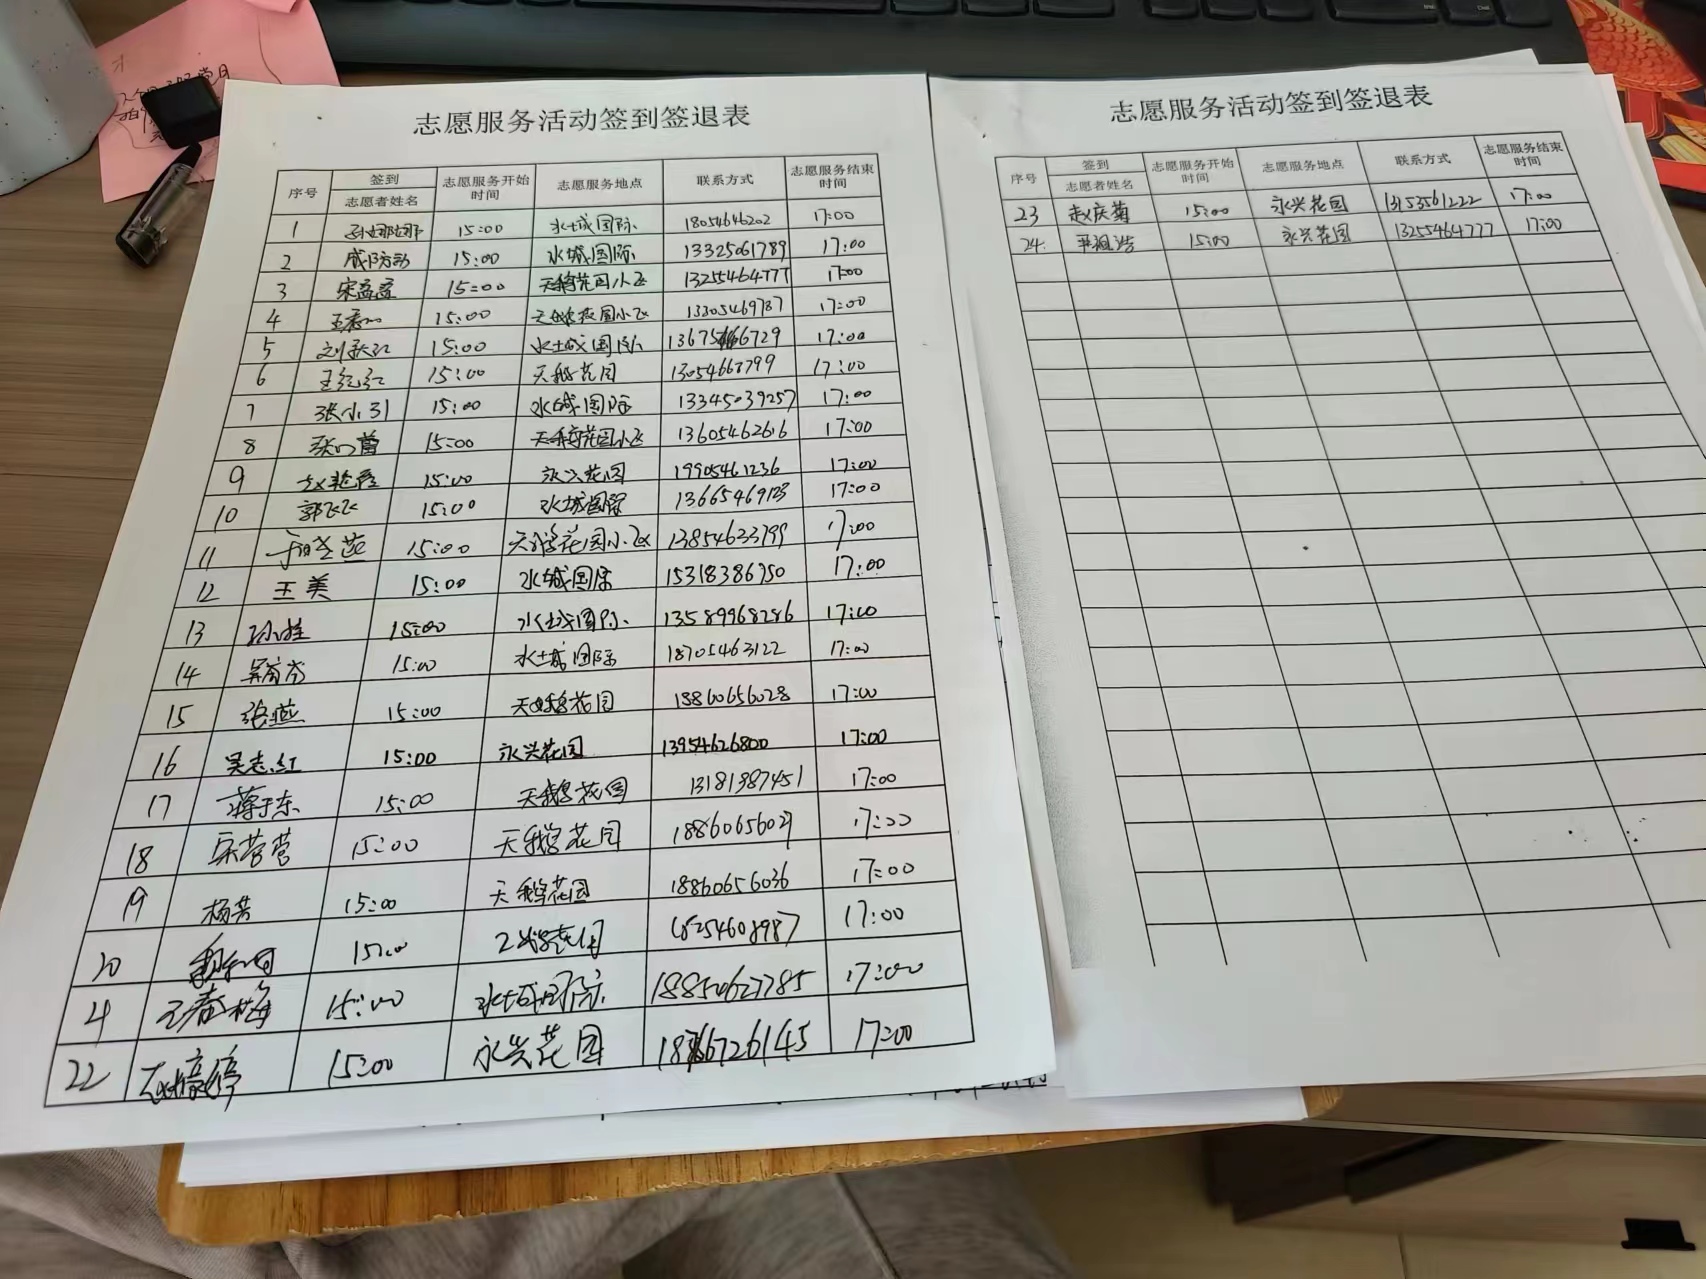 志愿服务活动签到签退表
序号 签到 志愿者姓名 志愿服务开始时间 志愿服务地点 联系方式 志愿服务结束时间
1 孙娜娜 15:00 水城国际 18054646202 17:00
2 15:00 水城国际 13325061789 17:00
3 宋孟孟 15:00 天鹅花园小区 13255464777 17:00
4 15:00 天鹅花园小区 13305469787 17:00
5 15:00 水城国际 17:00
6 王红红 15:00 天鹅花园 13054667799 17:00
7 张小引 15:00 水城国际 13345039257 17:00
8 15:00 天鹅花园小区 13605462616 17:00
9 赵艳霞 15:00 永兴花园 19905461236 17:00
10 郭飞飞 15:00 水城国际 17:00
11 15:00 天鹅花园小区 13854633799 17:00
12 王美 15:00 水城国际 15318386950 17:00
13 15:00 水城国际 13589968286 17:00
14 15:00 水城国际 18705463122 17:00
15 张燕 15:00 天鹅花园 18860656028 17:00
16 吴志红 15:00 永兴花园 13954626800 17:00
17 蒋于东 15:00 天鹅花园 13181987451 17:00
18 宋营营 15:00 天鹅花园 18860656029 17:00
19 杨芳 15:00 天鹅花园 18860656036 17:00
20 15:00 天鹅花园 17:00
21 王春梅 15:00 水城国际 18850627785 17:00
22 15:00 永兴花园 17:00
志愿服务活动签到签退表
序号 签到 志愿者姓名 志愿服务开始时间 志愿服务地点 联系方式 志愿服务结束时间
23 赵庆菊 15:00 永兴花园 13153561222 17:00
24 15:00 永兴花园 13255464777 17:00